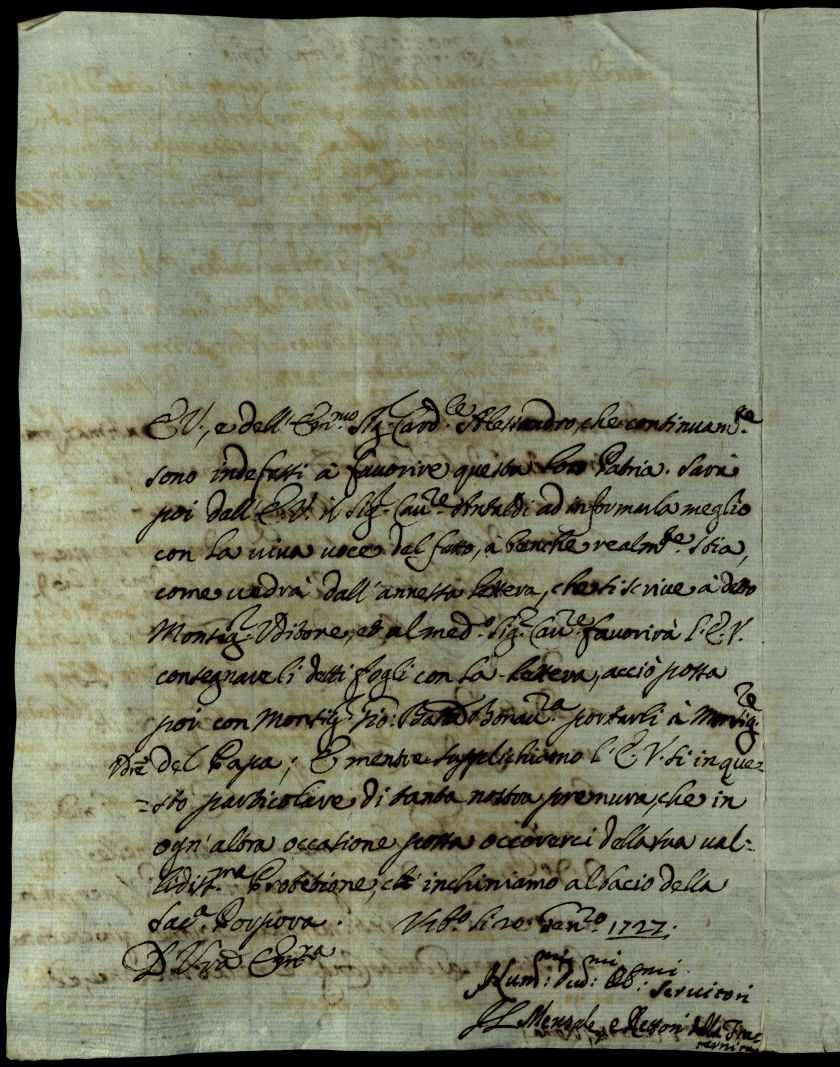 E V., e dell' Em.mo Sig. Card.le Alessandro, che continuam.te
sono indefessi à favorire questa loro Patria. Sarà
poi dall' E. V. il Sig. Cav.re Antaldi ad informarla meglio
con la viva voce del fatto, à benche realm.te stia,
come vedrà dall' annessa lettera, che si scrive à detto
Monsig.r Uditore, ed al med.o Sig.r Cav.re favorirà l' E. V.
consegnare li detti fogli con la lettera, acciò possa
poi con Monsig.r Bonav.ra portarli à Monsig.re
del Papa; E mentre supplichiamo l' E V. sì in que=
=sto particolare, di tanta nostra premura, che in
ogn' altra occasione possa occorrerci della sua val=
lidiss.ma Protetione, c' inchiniamo al bacio della
Sac.a Porpora. Urb.o li 20 Gen.ro 1727.
D. V.ra Em.za
Hum.mi Dev.mi Ob.mi Servitori
Il Mensale, e Rettori della Fra=
ternita